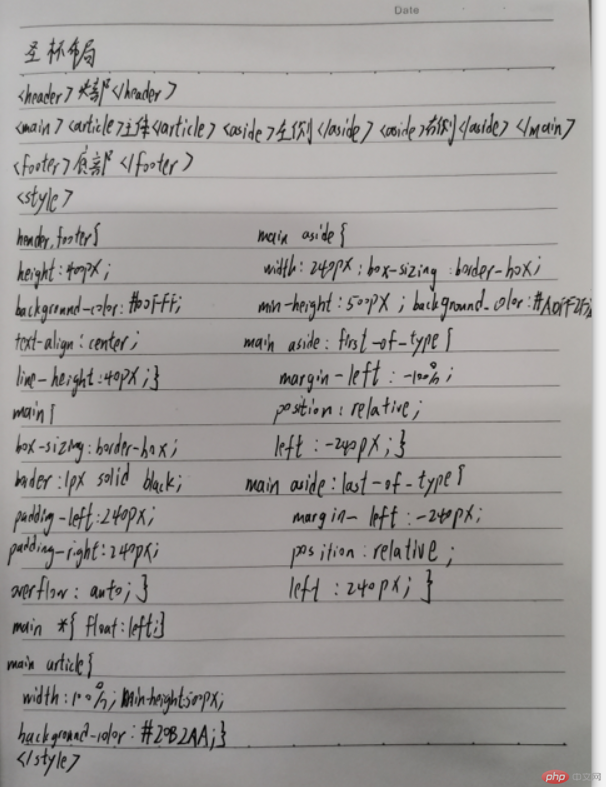 Date
圣杯布局
<header>头部</header>
<main><article>主体</article><aside>左侧</aside><aside>右侧</aside></main>
<footer>底部</footer>
<style>
header,footer{
height:40px;
background-color:#00FFFF;
text-align:center;
line-height:40px;}
main{
box-sizing:border-box;
border:1px solid black;
paddig-left:240px;
padding-right:240px;
overflow:auto;}
main *{float:left;}
main article{
width:100%;min-height:500px;
background-color:#20B2AA;}
</style>
main aside{
width:240px;box-sizing:border-box;
min-height:500px;background-color:
main aside:first-of-type{
margin-left:-100%;
position:relative;
left:-240px;}
main aside:last-of-type{
margin-left:-240px;
position:relative;
left:240px;}
php中文网